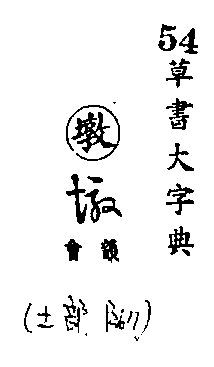 54
草書大字典
墩
墩
韻會
(土部